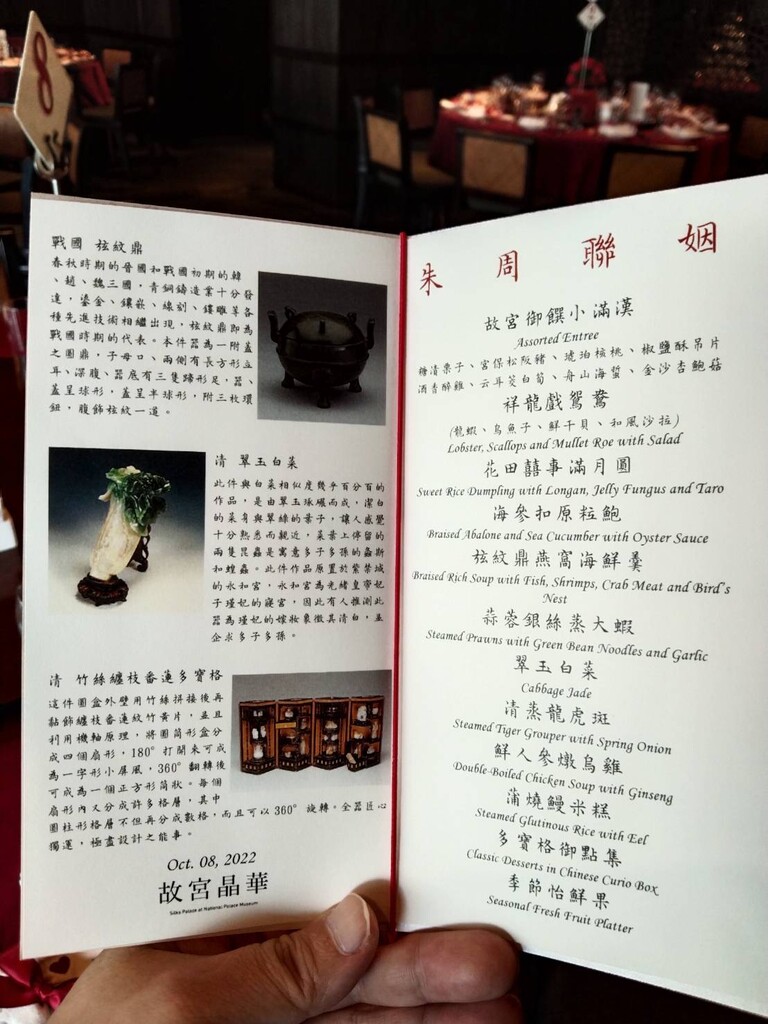 8
戰國 弦紋鼎
春秋時期的晉國和戰國初期的韓
、趙、魏三國，青銅鑄造業十分發
達，鎏金、鑲嵌、線刻、鏤雕等各
種先進技術相繼出現，弦紋鼎即為
戰國時期的代表。本件器為一附蓋
之圓鼎，子母口、兩側有長方形立
耳、深腹、器底有三隻蹄形足，器、
蓋呈球形，蓋呈半球形，附三枚環
鈕，腹飾弦紋一道。
清 翠玉白菜
此件與白菜相似度幾乎百分百的
作品，是由翠玉琢碾而成，潔白
的菜身與翠綠的葉子，讓人感覺
十分熟悉而親近，菜葉上停留的
兩隻昆蟲是寓意多子多孫的螽斯
和蝗蟲。此件作品原置於紫禁城
的永和宮，永和宮為光緒皇帝妃
子瑾妃的寢宮，因此有人推測此
器為瑾妃的嫁妝象徵其清白，並
企求多子多孫。
清 竹絲纏枝番蓮多寶格
這件圓盒外壁用竹絲拼接後再
黏飾纏枝番蓮紋竹黃片，並且
利用機軸原理，將圓筒形盒分
成四個扇形，180° 打開來可成
為一字形小屏風，360° 翻轉後
可成為一個正方形筒狀。每個
扇形內又分成許多格層，其中
圓柱形格層不但再分成數格，而且可以 360° 旋轉。全器匠心
獨運，極盡設計之能事。
Oct. 08, 2022
故宮晶華
Silks Palace at National Palace Museum
朱 周 聯 姻
故宮御饌小滿漢
Assorted Entree
糖漬栗子、宮保松阪豬、琥珀核桃、椒鹽酥吊片
酒香醉雞、云耳筊白筍、舟山海蜇、金沙杏鮑菇
祥龍戲鴛鴦
(龍蝦、烏魚子、鮮干貝、和風沙拉)
Lobster, Scallops and Mullet Roe with Salad
花田囍事滿月圓
Sweet Rice Dumpling with Longan, Jelly Fungus and Taro
海參扣原粒鮑
Braised Abalone and Sea Cucumber with Oyster Sauce
弦紋鼎燕窩海鮮羹
Braised Rich Soup with Fish, Shrimps, Crab Meat and Bird's
Nest
蒜蓉銀絲蒸大蝦
Steamed Prawns with Green Bean Noodles and Garlic
翠玉白菜
Cabbage Jade
清蒸龍虎斑
Steamed Tiger Grouper with Spring Onion
鮮人參燉烏雞
Double-Boiled Chicken Soup with Ginseng
蒲燒鰻米糕
Steamed Glutinous Rice with Eel
多寶格御點集
Classic Desserts in Chinese Curio Box
季節怡鮮果
Seasonal Fresh Fruit Platter